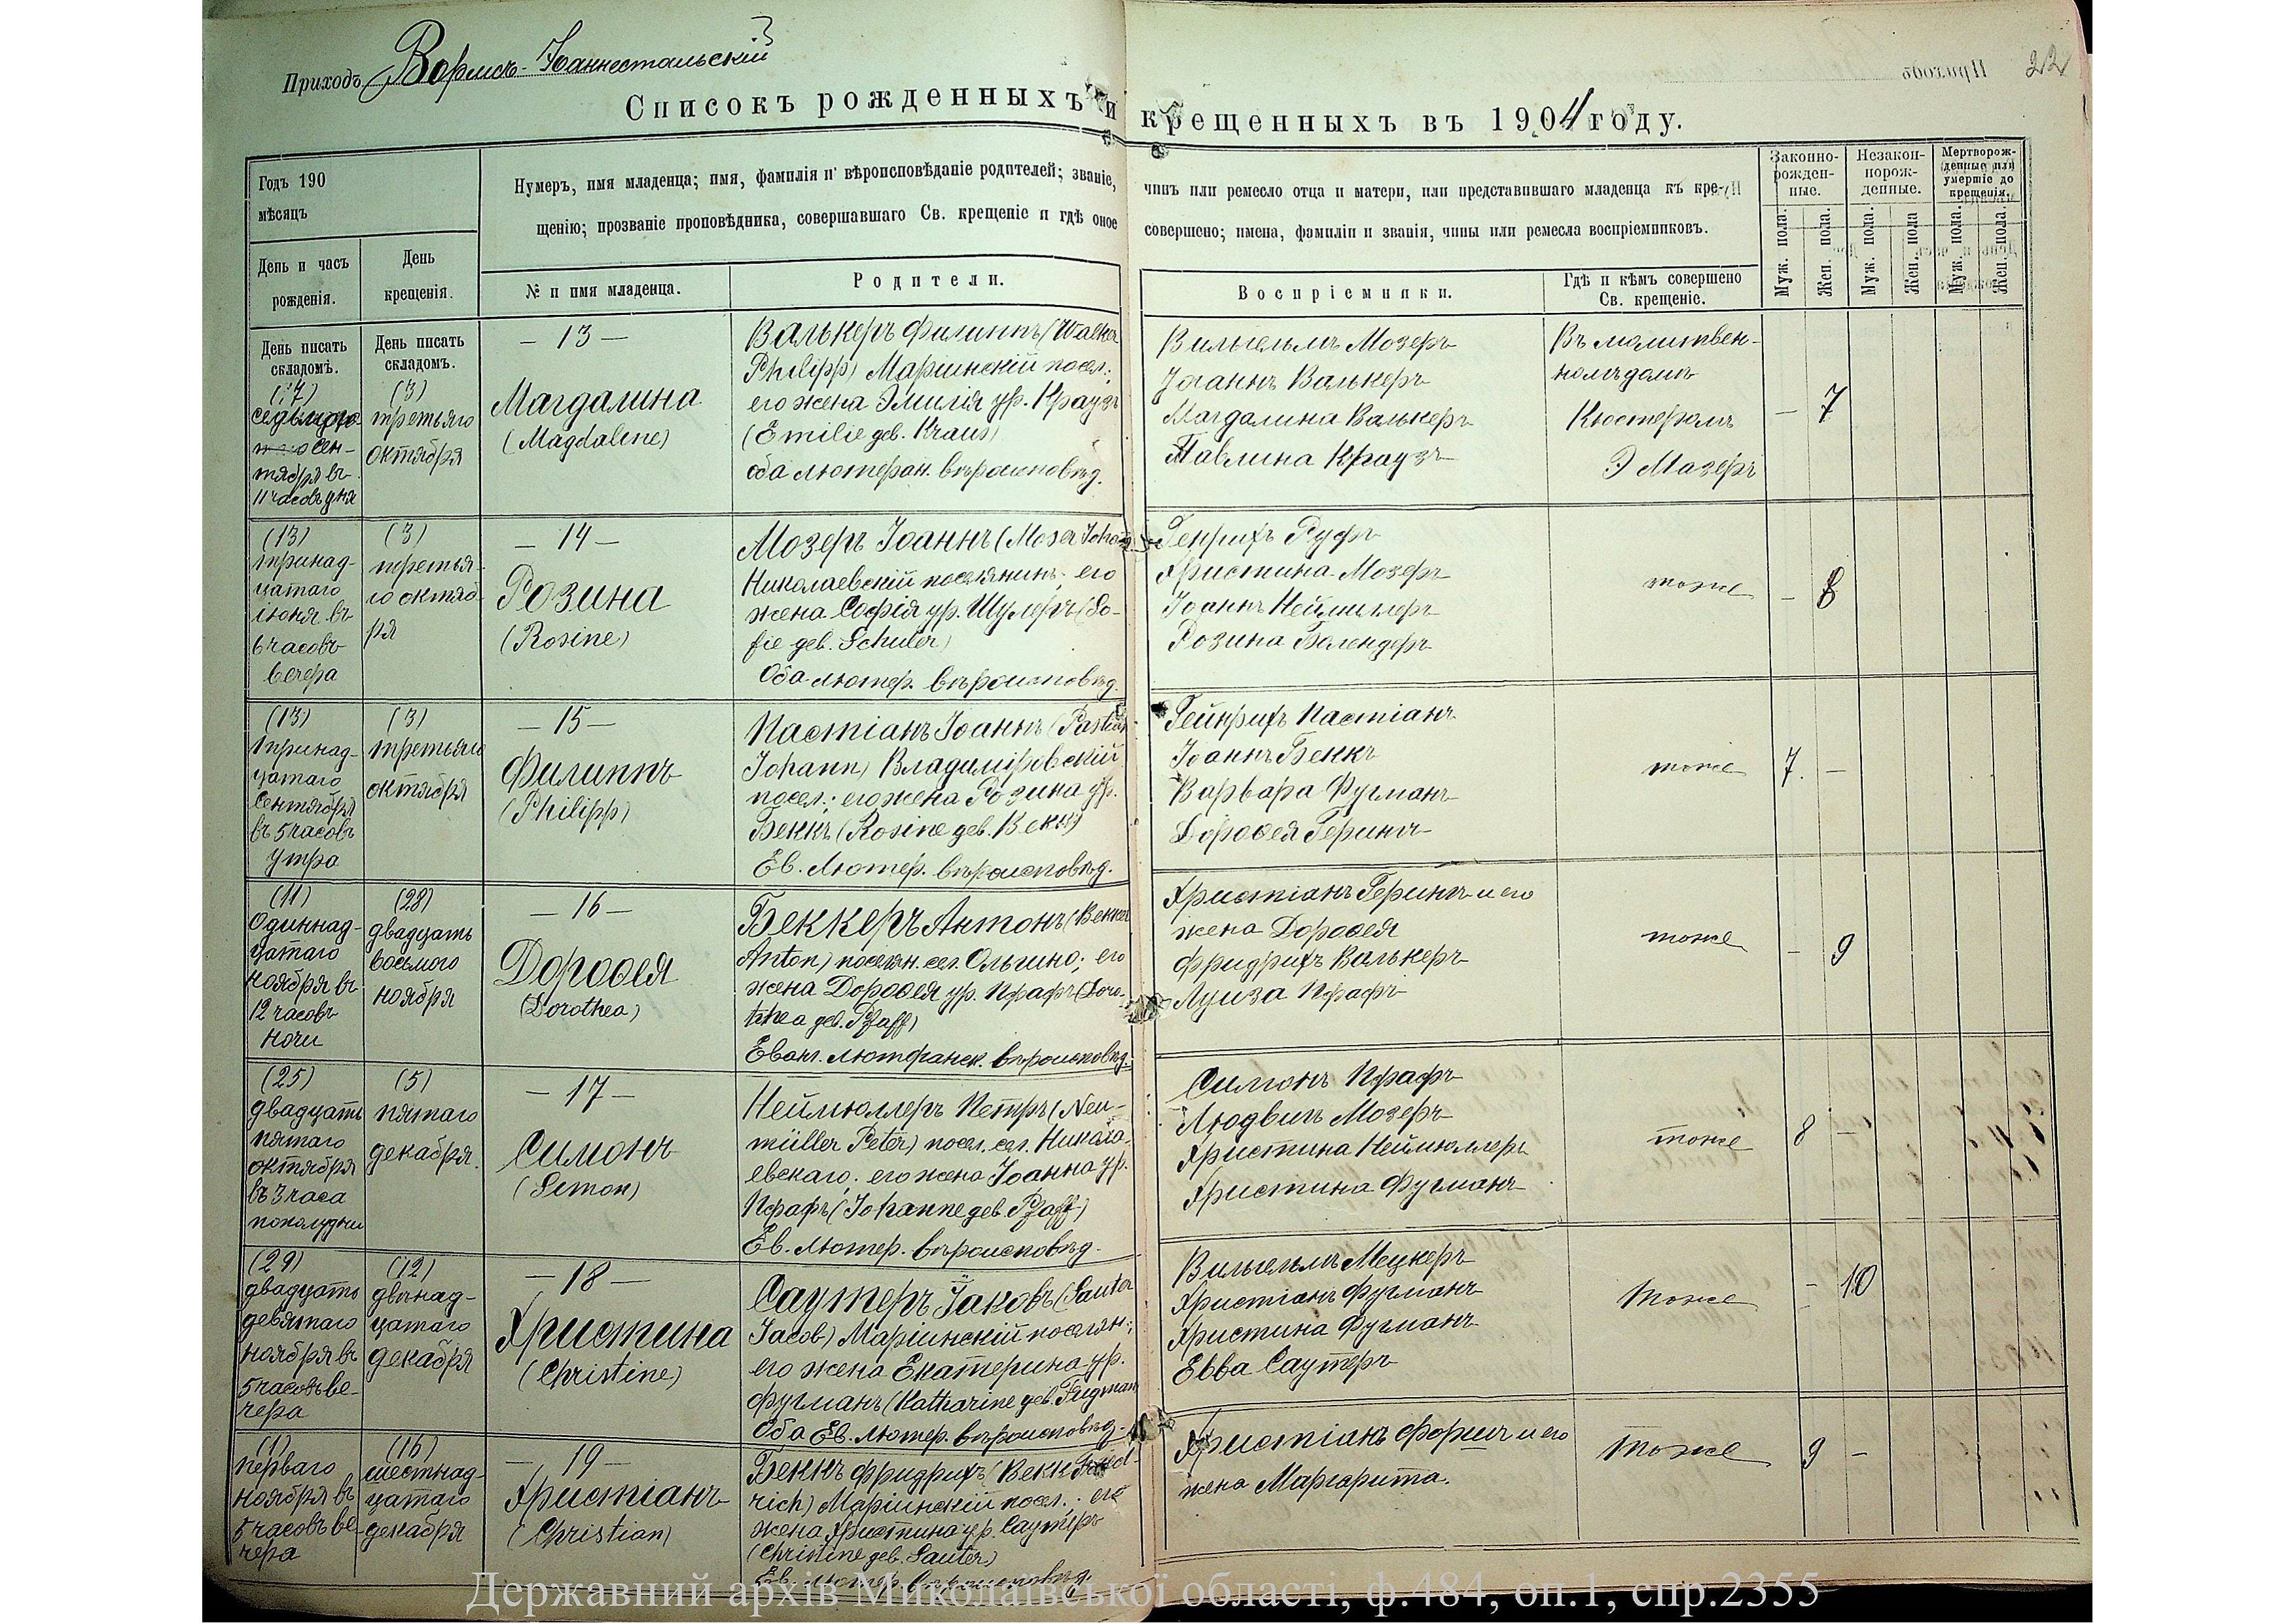 Приходъ Вормсъ-Іоаннестальскій
22
Списокъ рожденныхъ и крещенныхъ въ 1904 году.
Годъ 190
мѣсяцъ
Нумеръ, имя младенца; имя, фамилія и вѣроисповѣданіе родителей; званіе, чинъ или ремесло отца и матери, или представившаго младенца къ кре-
щенію; прозваніе проповѣдника, совершавшаго Св. крещеніе и гдѣ оное совершено; имена, фамиліи и званія, чины или ремесла воспріемниковъ.
Законно-
рожден-
ные.
Незакон-
норож-
денные.
Мертворож-
денные или
умершіе до
крещенія.
День и часъ
рожденія.
День
крещенія.
№ и имя младенца.
Родители.
Воспріемники.
Гдѣ и кѣмъ совершено
Св. крещеніе.
Муж. пола.
Жен. пола.
Муж. пола.
Жен. пола
Муж. пола.
Жен. пола.
День писать
складомъ.
(7)
сен-
тября въ
11 часовъ дня
День писать
складомъ.
(3)
третьяго
октября
— 13 —
Магдалина
(Magdalene)
Валькеръ Филиппъ (Walker
Philipp) Маріинскій посел.;
его жена Эмилія ур. Краузъ
(Emilie geb. Kraus)
оба лютеран. вѣроисповѣд.
Вильгельмъ Мозеръ
Іоаннъ Валькеръ
Магдалина Валькеръ
Павлина Краузъ
Въ молитвен-
номъ домѣ
Кюстеромъ
Э Мазеръ
— 7
(13)
тринад-
цатаго
іюня въ
6 часовъ
вечера
(3)
третья-
го октяб-
ря
— 14 —
Розина
(Rosine)
Мозеръ Іоаннъ (Moser Johann
Николаевскій поселянинъ; его
жена Софія ур. Шулеръ (So-
fie geb. Schuler)
Оба лютер. вѣроисповѣд.
Генрихъ Руфъ
Христина Мозеръ
Іоаннъ Неймиллеръ
Розина Балендеръ
тоже
— 8
(13)
тринад-
цатаго
Сентября
въ 5 часовъ
утра
(3)
третьяго
октября
— 15 —
Филиппъ
(Philipp)
Пастіанъ Іоаннъ (Pastian
Johann) Владиміровскій
посел.; его жена Розина ур.
Беккъ (Rosine geb. Bekk)
Ев. Лютер. вѣроисповѣд.
Гейнрихъ Пастіанъ
Іоаннъ Беккъ
Варвара Фугманъ
Дороѳея Герингъ
тоже
7. —
(11)
Одиннад-
цатаго
ноября въ
12 часовъ
ночи
(28)
двадцать
восьмого
ноября
— 16 —
Дороѳея
(Dorothea)
Беккеръ Антонъ (Bekker
Anton) поселян. сел. Ольгино; его
жена Дороѳея ур. Пфафъ (Doro-
thea geb. Pfaff)
Еванг. лютеранск. вѣроисповѣд.
Христіанъ Герингъ и его
жена Дороѳея
Фридрихъ Валькеръ
Луиза Пфафъ
тоже
— 9
(25)
двадцать
пятаго
октября
въ 3 часа
пополудни
(5)
пятаго
декабря.
— 17 —
Симонъ
(Simon)
Неймюллеръ Петръ (Neu-
müller Peter) посел. сел. Никола-
евскаго; его жена Іоанна ур.
Пфафъ (Johanne geb. Pfaff)
Ев. Лютер. вѣроисповѣд.
Симонъ Пфафъ
Людвигъ Мозеръ
Христина Неймюллеръ
Христина Фугманъ
тоже
8 —
(29)
двадцать
девятаго
ноября въ
5 часовъ ве-
чера
(12)
двѣнад-
цатаго
декабря
— 18 —
Христина
(Christine)
Саутеръ Іаковъ (Sauter
Jacob) Маріинскій поселян.;
его жена Екатерина ур.
Фугманъ (Katharine geb. Fugmann
Оба Ев. Лютер. вѣроисповѣд.
Вильгельмъ Мецкеръ
Христіанъ Фугманъ
Христина Фугманъ
Евва Саутеръ
Тоже
— 10
(1)
перваго
ноября въ
5 часовъ ве-
чера
(16)
шестнад-
цатаго
декабря
— 19 —
Христіанъ
(Christian)
Беккъ Фридрихъ (Bekk Fried-
rich) Маріинскій посел.; его
жена Христина ур. Саутеръ
(Christine geb. Sauter)
Ев. Лютер. вѣроисповѣд.
Христіанъ Форшъ и его
жена Маргарита.
Тоже
9 —
Державний архів Миколаївської області, ф.484, оп.1, спр.2355